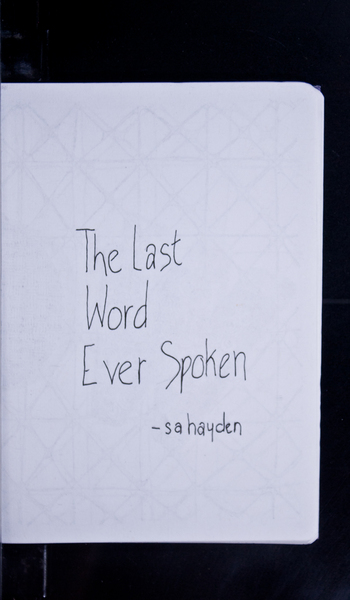 The Last
Word
Ever Spoken
- sahayden